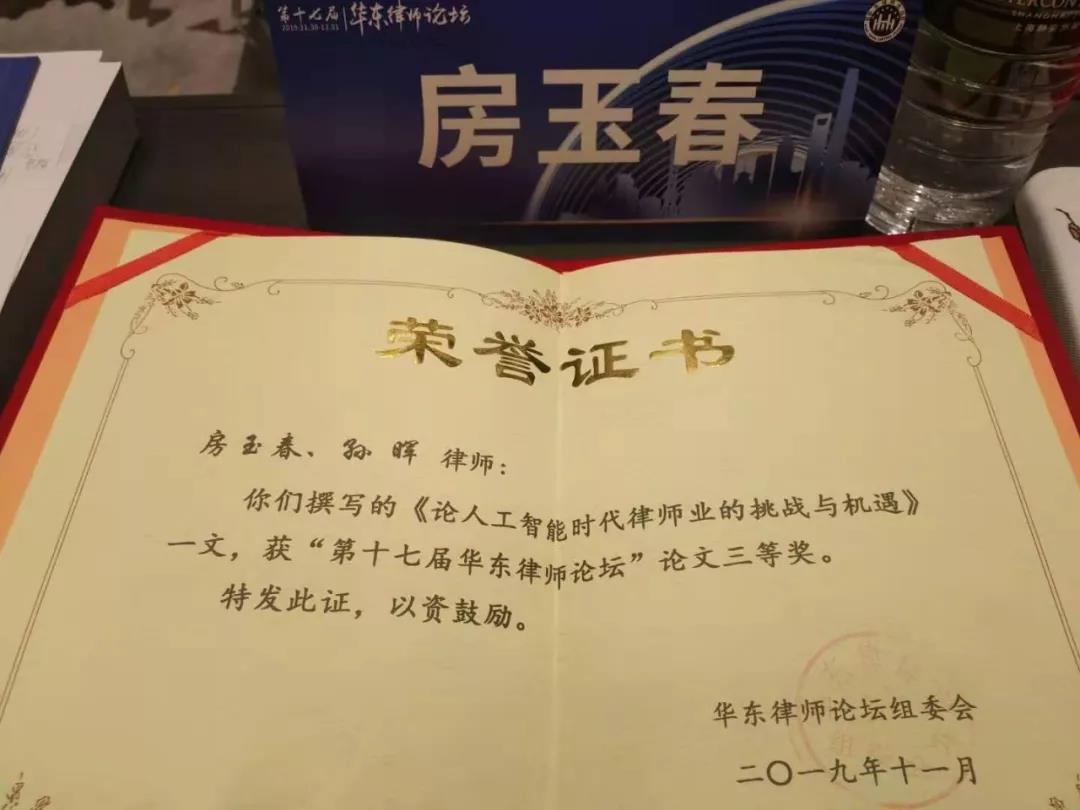 第十七届 华东律师论坛
2019.11.30-12.01
房玉春
荣誉证书
房玉春、孙晖 律师：
你们撰写的《论人工智能时代律师业的挑战与机遇》
一文，获“第十七届华东律师论坛”论文三等奖。
特发此证，以资鼓励。
华东律师论坛组委会
二〇一九年十一月